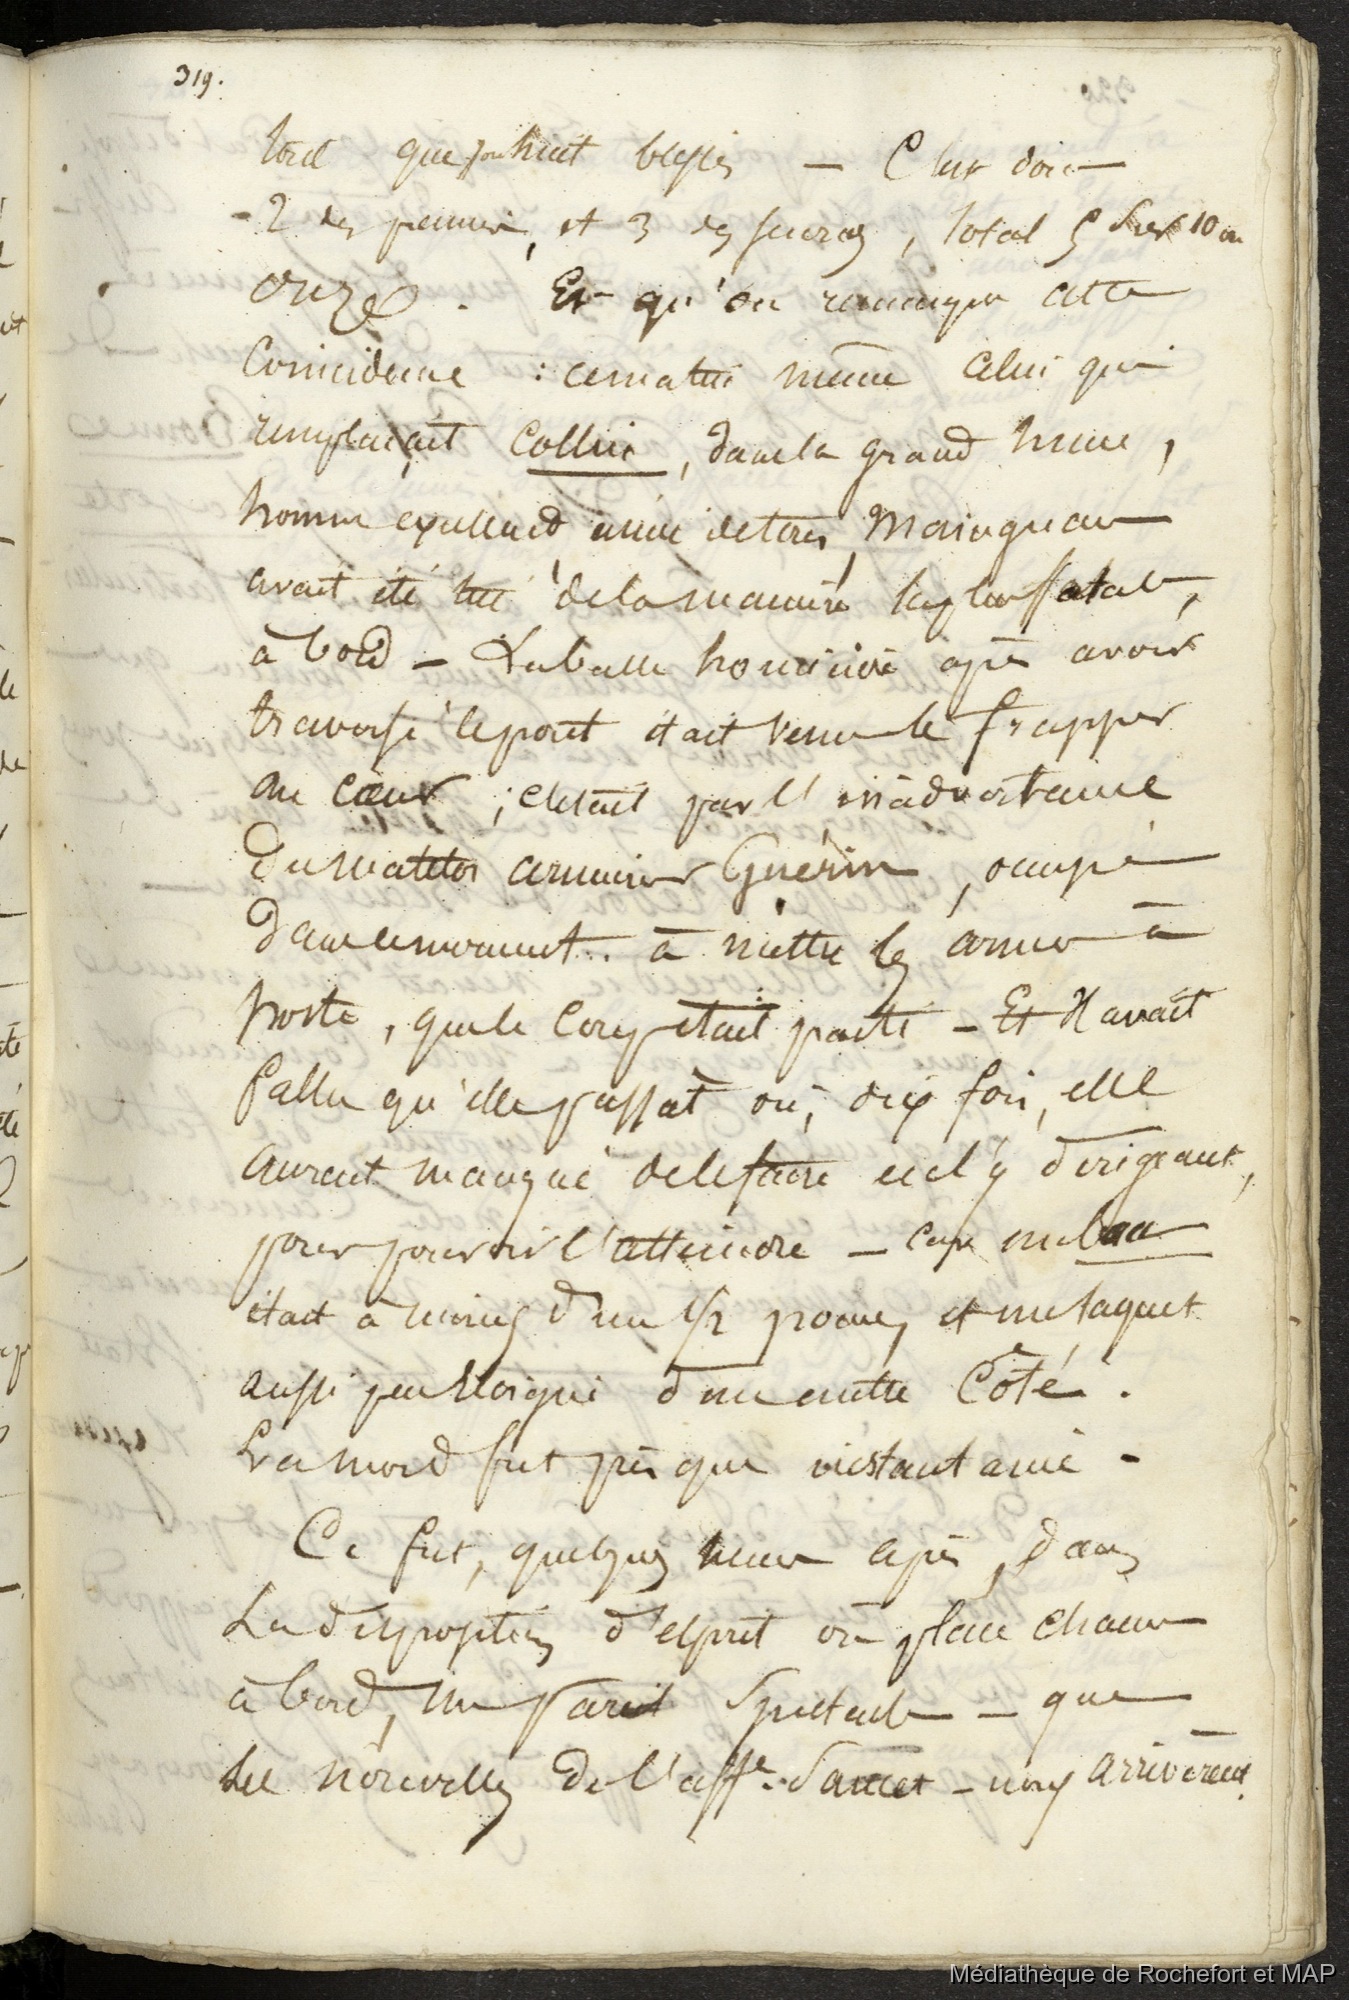 319.
que blessés — C'est donc
- 2 des premiers, et 3 des seconds, total 5 sur 10 ou
onze. Et qu'on remarque cette
Coïncidence : ce matin même celui qui
remplaçait Collin, dans la grand hune,
homme excellent aimé de tous, Mainguan
avait été tué de la manière la plus fatale,
à bord — La balle homicide après avoir
traversé le pont était venu le frapper
au cœur ; c'était par l'inadvertance
du matelot armurier Guérin, occupé
dans ce moment.. à mettre les armes à
poste, que le coup était parti — Et il avait
fallu qu'elle passât où, dix fois, elle
aurait manqué de le faire en l'y dirigeant,
pour pouvoir l'atteindre — car un bau
était à moins d'un 1/2 pouce, et un taquet
aussi peu éloigné d'un autre Côté.
La mort fut presque instantanée -
Ce fut, quelques heures après, dans
La disposition d'esprit où place chacun
à bord, un pareil spectacle — que
les nouvelles de l'affre. Sancet — nous arrivèrent.
Médiathèque de Rochefort et MAP